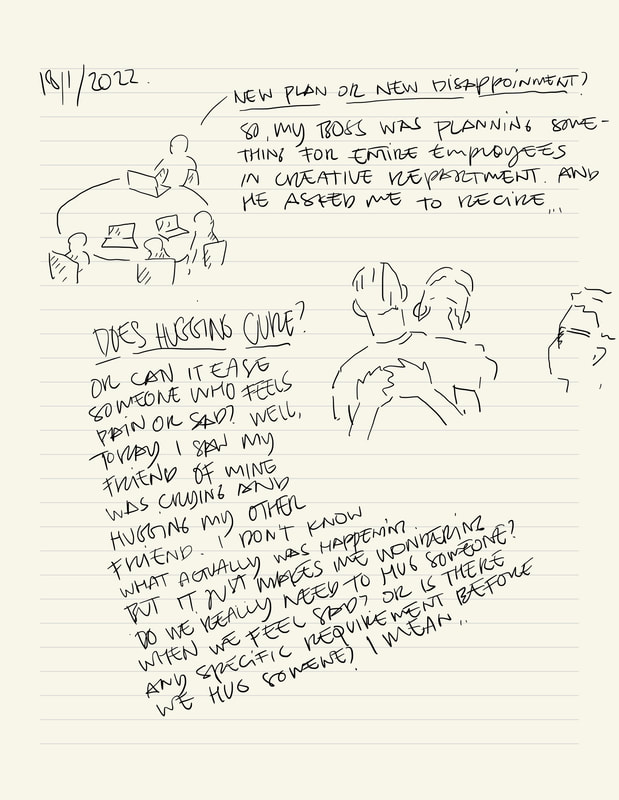 18/1/2022.
NEW PLAN OR NEW DISAPPOINMENT?
SO, MY BOSS WAS PLANNING SOME-
THING FOR ENTIRE EMPLOYEES
IN CREATIVE DEPARTMENT. AND
HE ASKED ME TO DECIDE...
DOES HUGGING CURE?
OR CAN IT EASE
SOMEONE WHO FEELS
PAIN OR SAD? WELL,
TODAY I SAW MY
FRIEND OF MINE
WAS CRYING AND
HUGGING MY OTHER
FRIEND. I DON'T KNOW
WHAT ACTUALLY WAS HAPPENING.
BUT IT JUST MAKES ME WONDERING
DO WE REALLY NEED TO HUG SOMEONE?
WHEN WE FEEL SAD? OR IS THERE
AND SPECIFIC REQUIREMENT BEFORE
WE HUG SOMEONE? I MEAN..